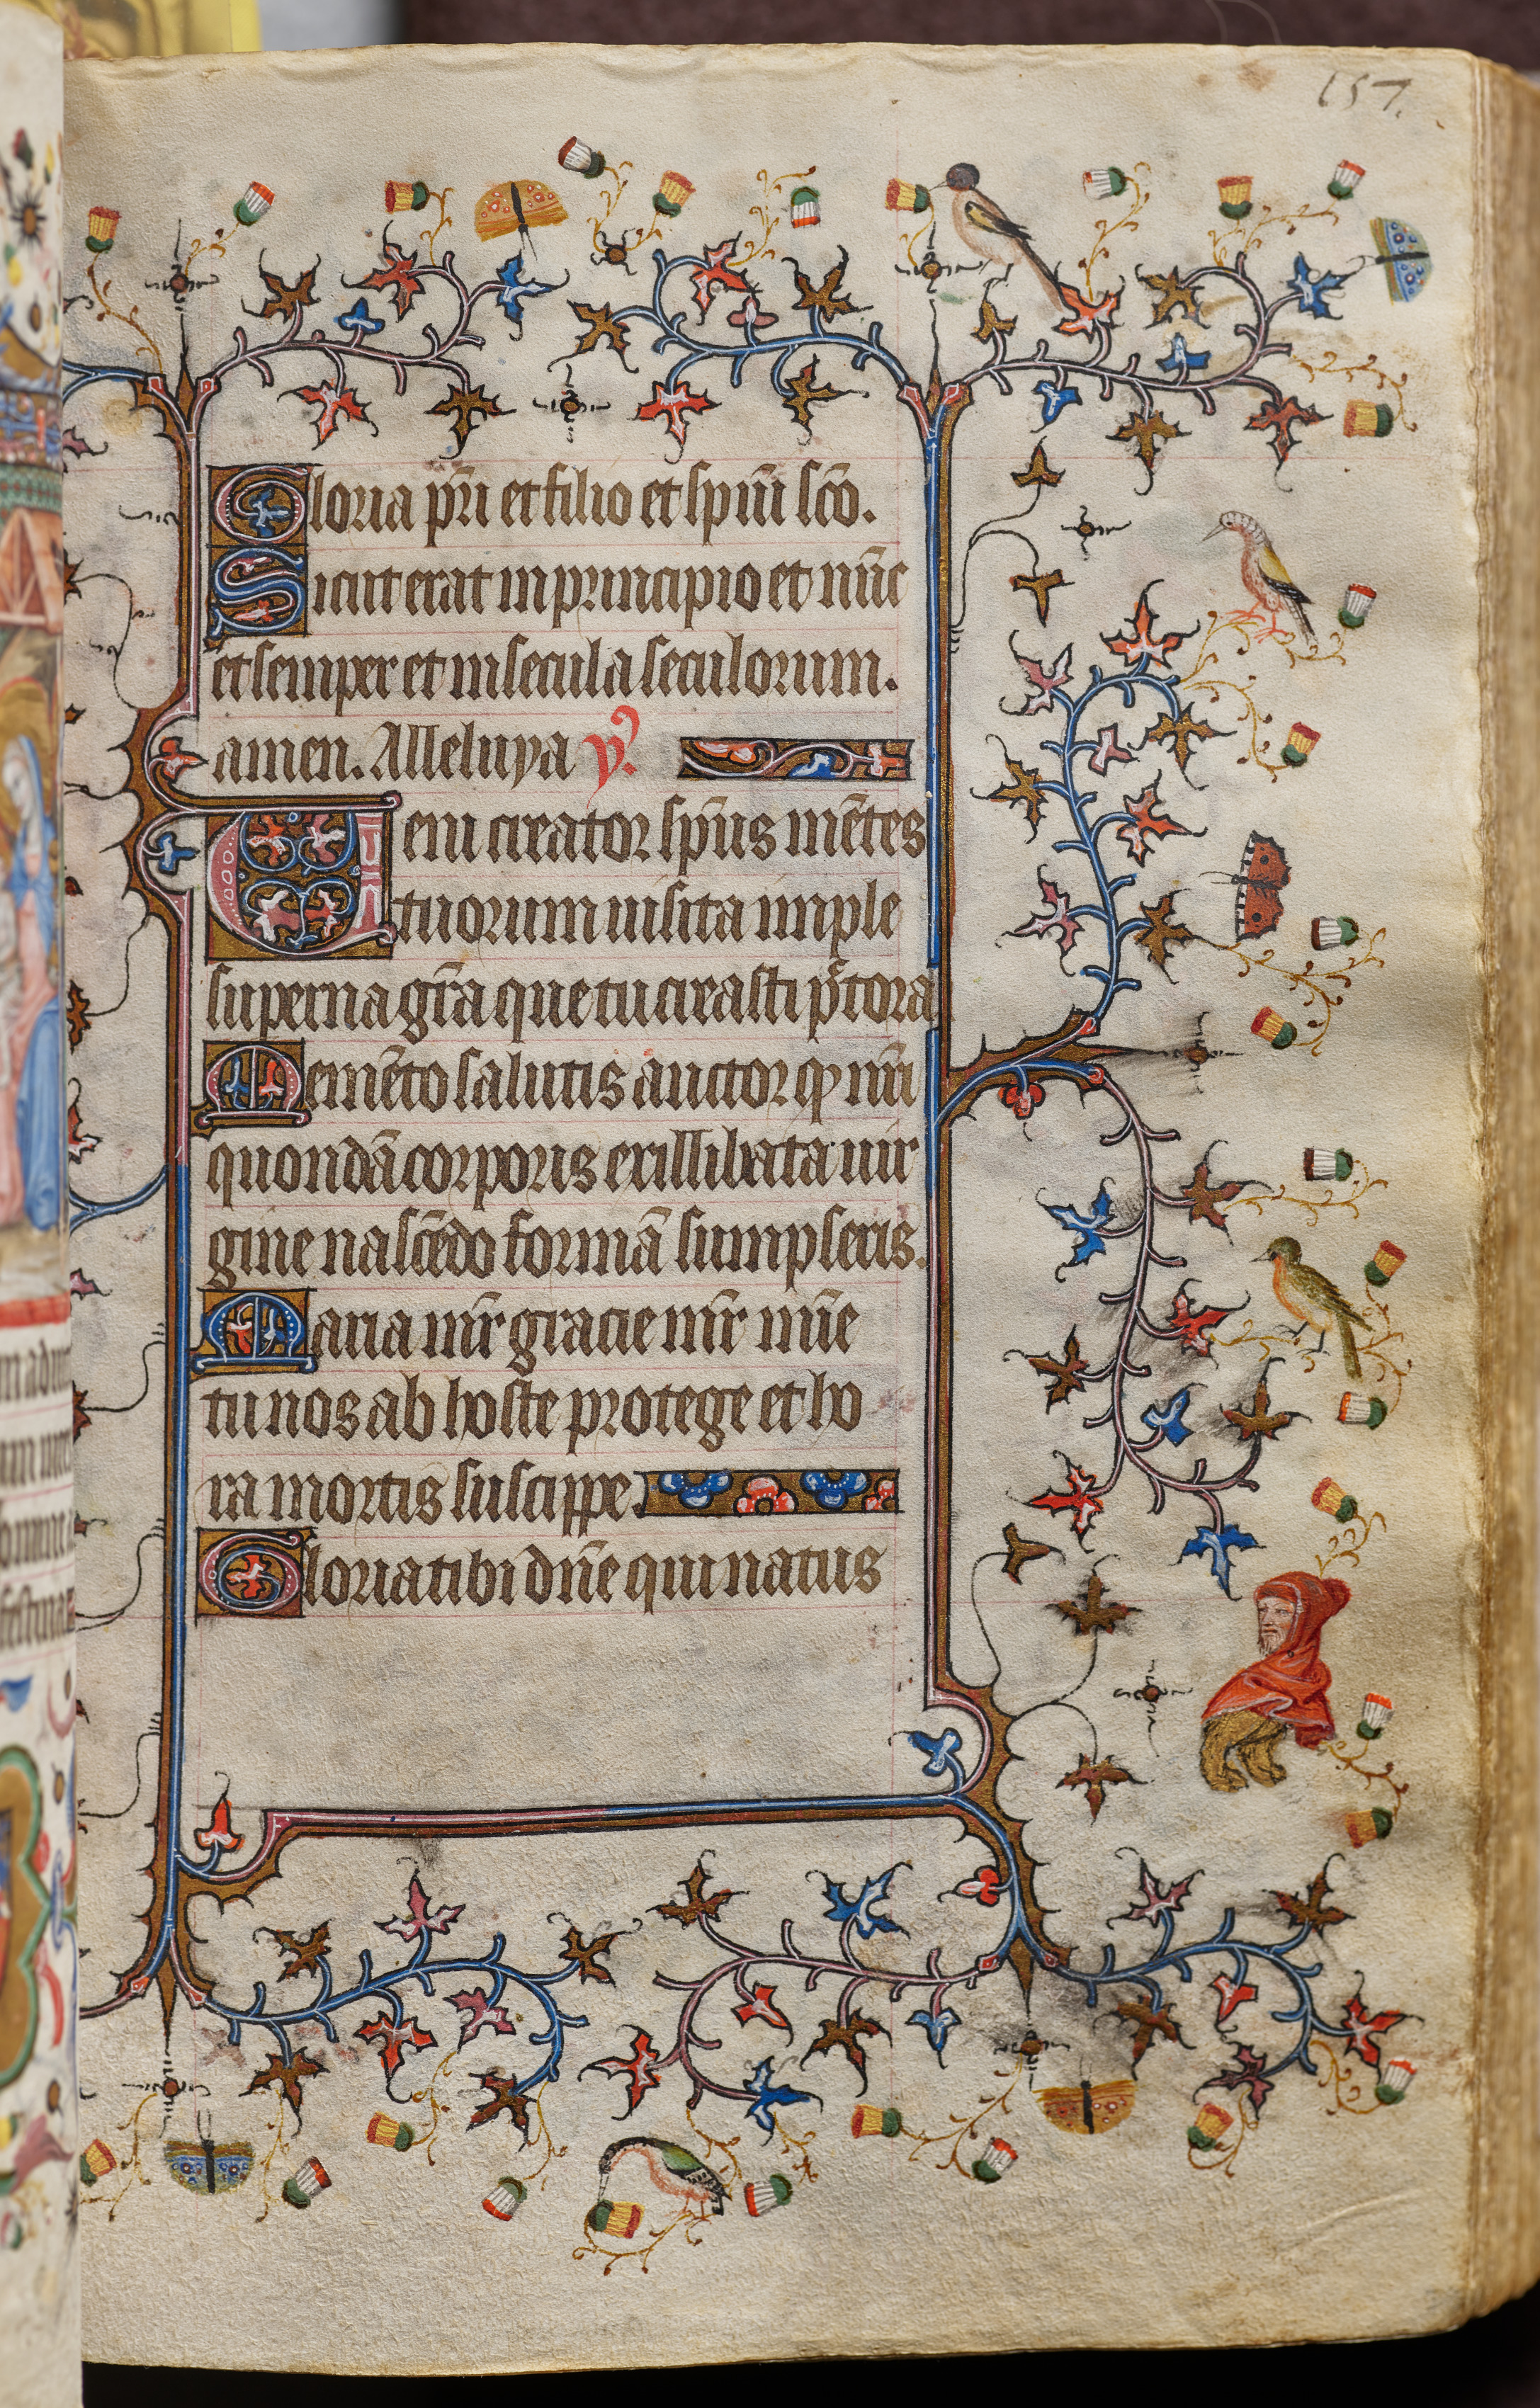 157.
Gloria pr̄i et filio et spūi sc̄o.
Sicut erat in principio et nūc
et semper et in secula seculorum.
amen. Alleluya v̓.
Veni creator spūs mētes
tuorum uisita imple
superna gr̄a que tu creasti pc̄tora
Memēto salutis auctor qꝫ nr̄i
quondā corporis ex illibata uir
gine nascēdo formā sumpseris.
Maria mr̄ gracie mr̄ mīe
tu nos ab hoste protege et ho
ra mortis suscippe.
Gloria tibi dn̄e qui natus